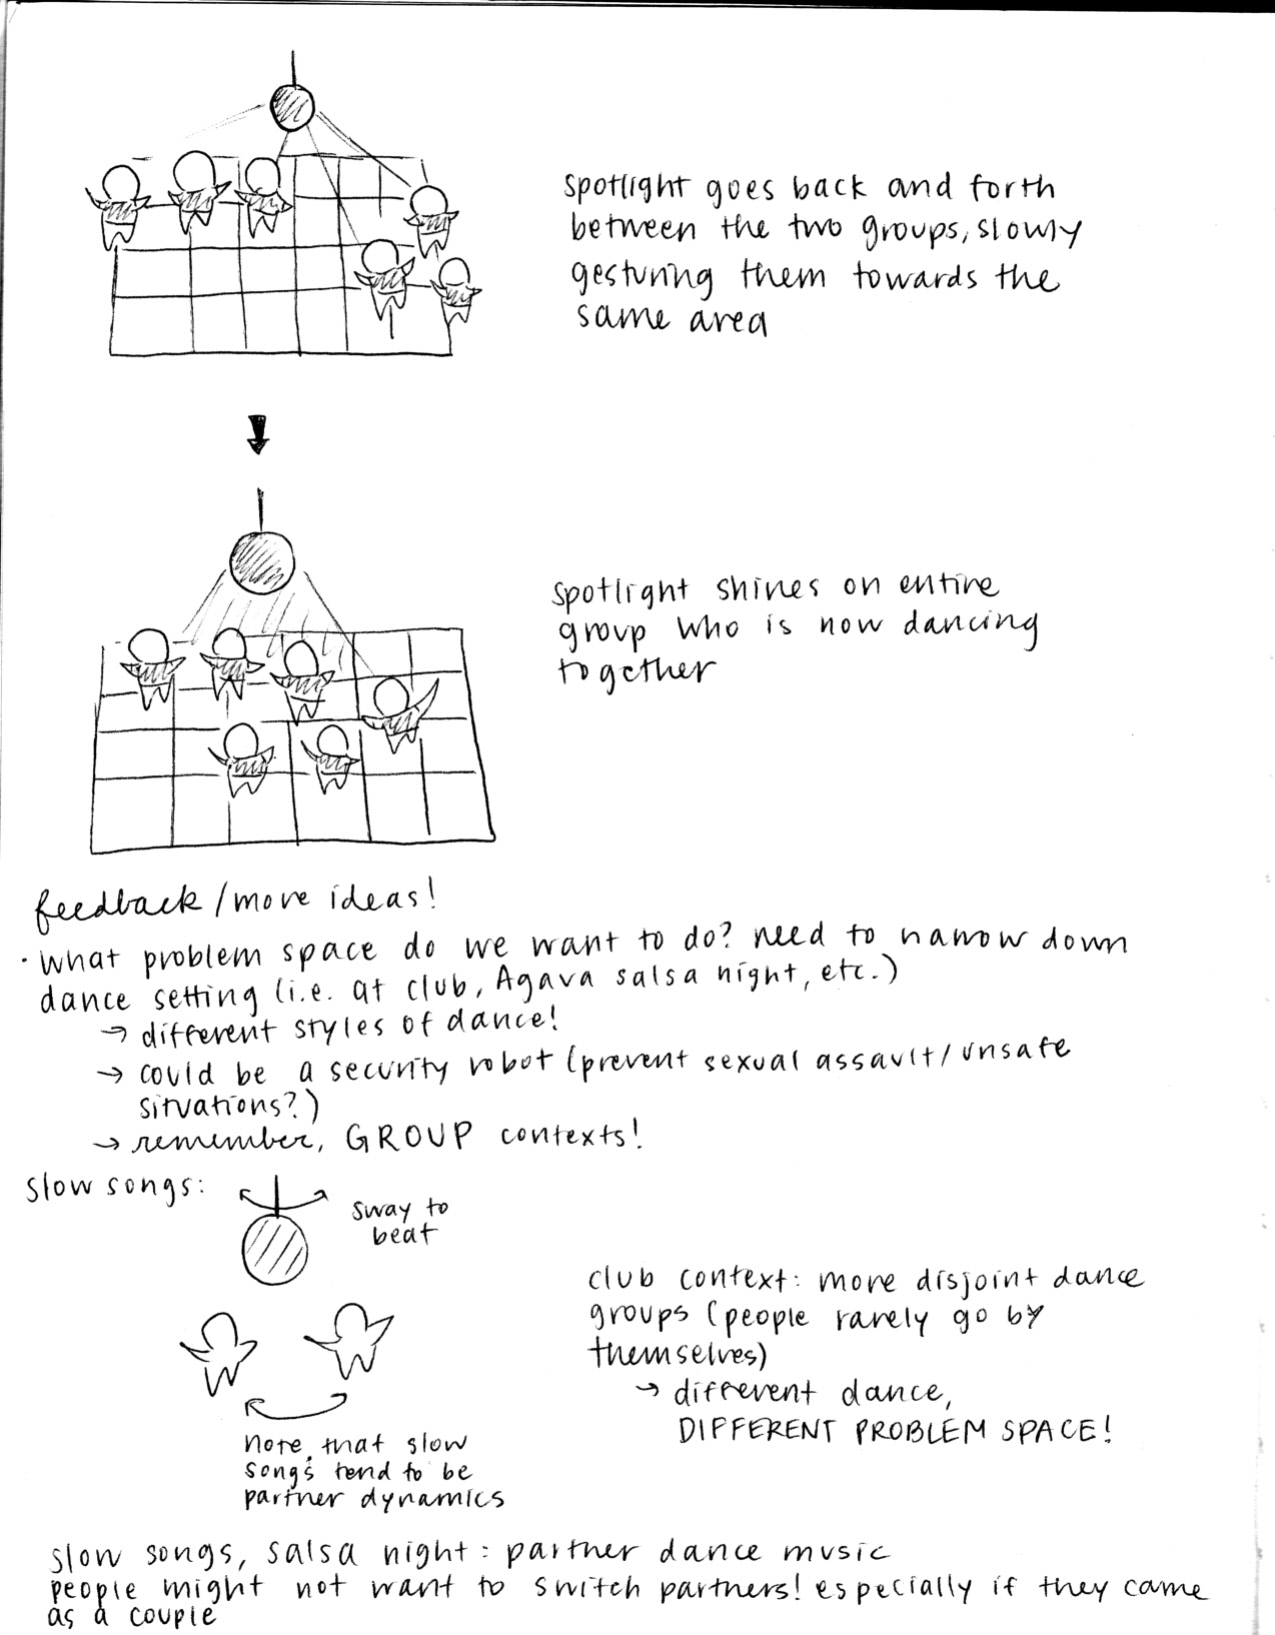 spotlight goes back and forth
between the two groups, slowly
gesturing them towards the
same area
spotlight shines on entire
group who is now dancing
together
feedback/more ideas!
· what problem space do we want to do? need to narrow down
dance setting (i.e. at club, Agava salsa night, etc.)
→ different styles of dance!
→ could be a security robot (prevent sexual assault/unsafe
situations?)
→ remember, GROUP contexts!
slow songs:
sway to
beat
note, that slow
songs tend to be
partner dynamics
club context: more disjoint dance
groups (people rarely go by
themselves)
→ different dance,
DIFFERENT PROBLEM SPACE!
slow songs, salsa night: partner dance music
people might not want to switch partners! especially if they came
as a couple